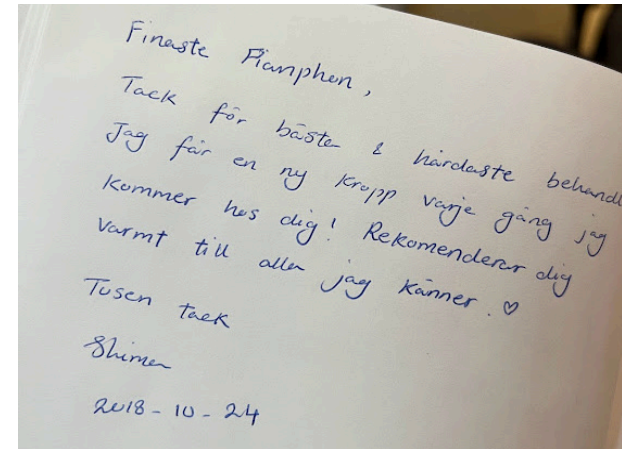 Finaste Pianphen,
Tack för bästa & hårdaste behandl
Jag får en ny kropp varje gång jag
kommer hos dig! Rekomenderar dig
varmt till alla jag känner. ♡
Tusen tack
Shimen
2018-10-24